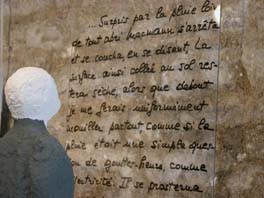 ...Surpris par la pluie loin
de tout abri Macmann s'arrêta
et se coucha, en se disant, La
surface ainsi collée au sol res-
tera sèche, alors que debout
je me ferais uniformément
mouiller partout comme si la
pluie était une simple ques-
on de gouttes-heure, comme
l'électricité. Il se prosterna